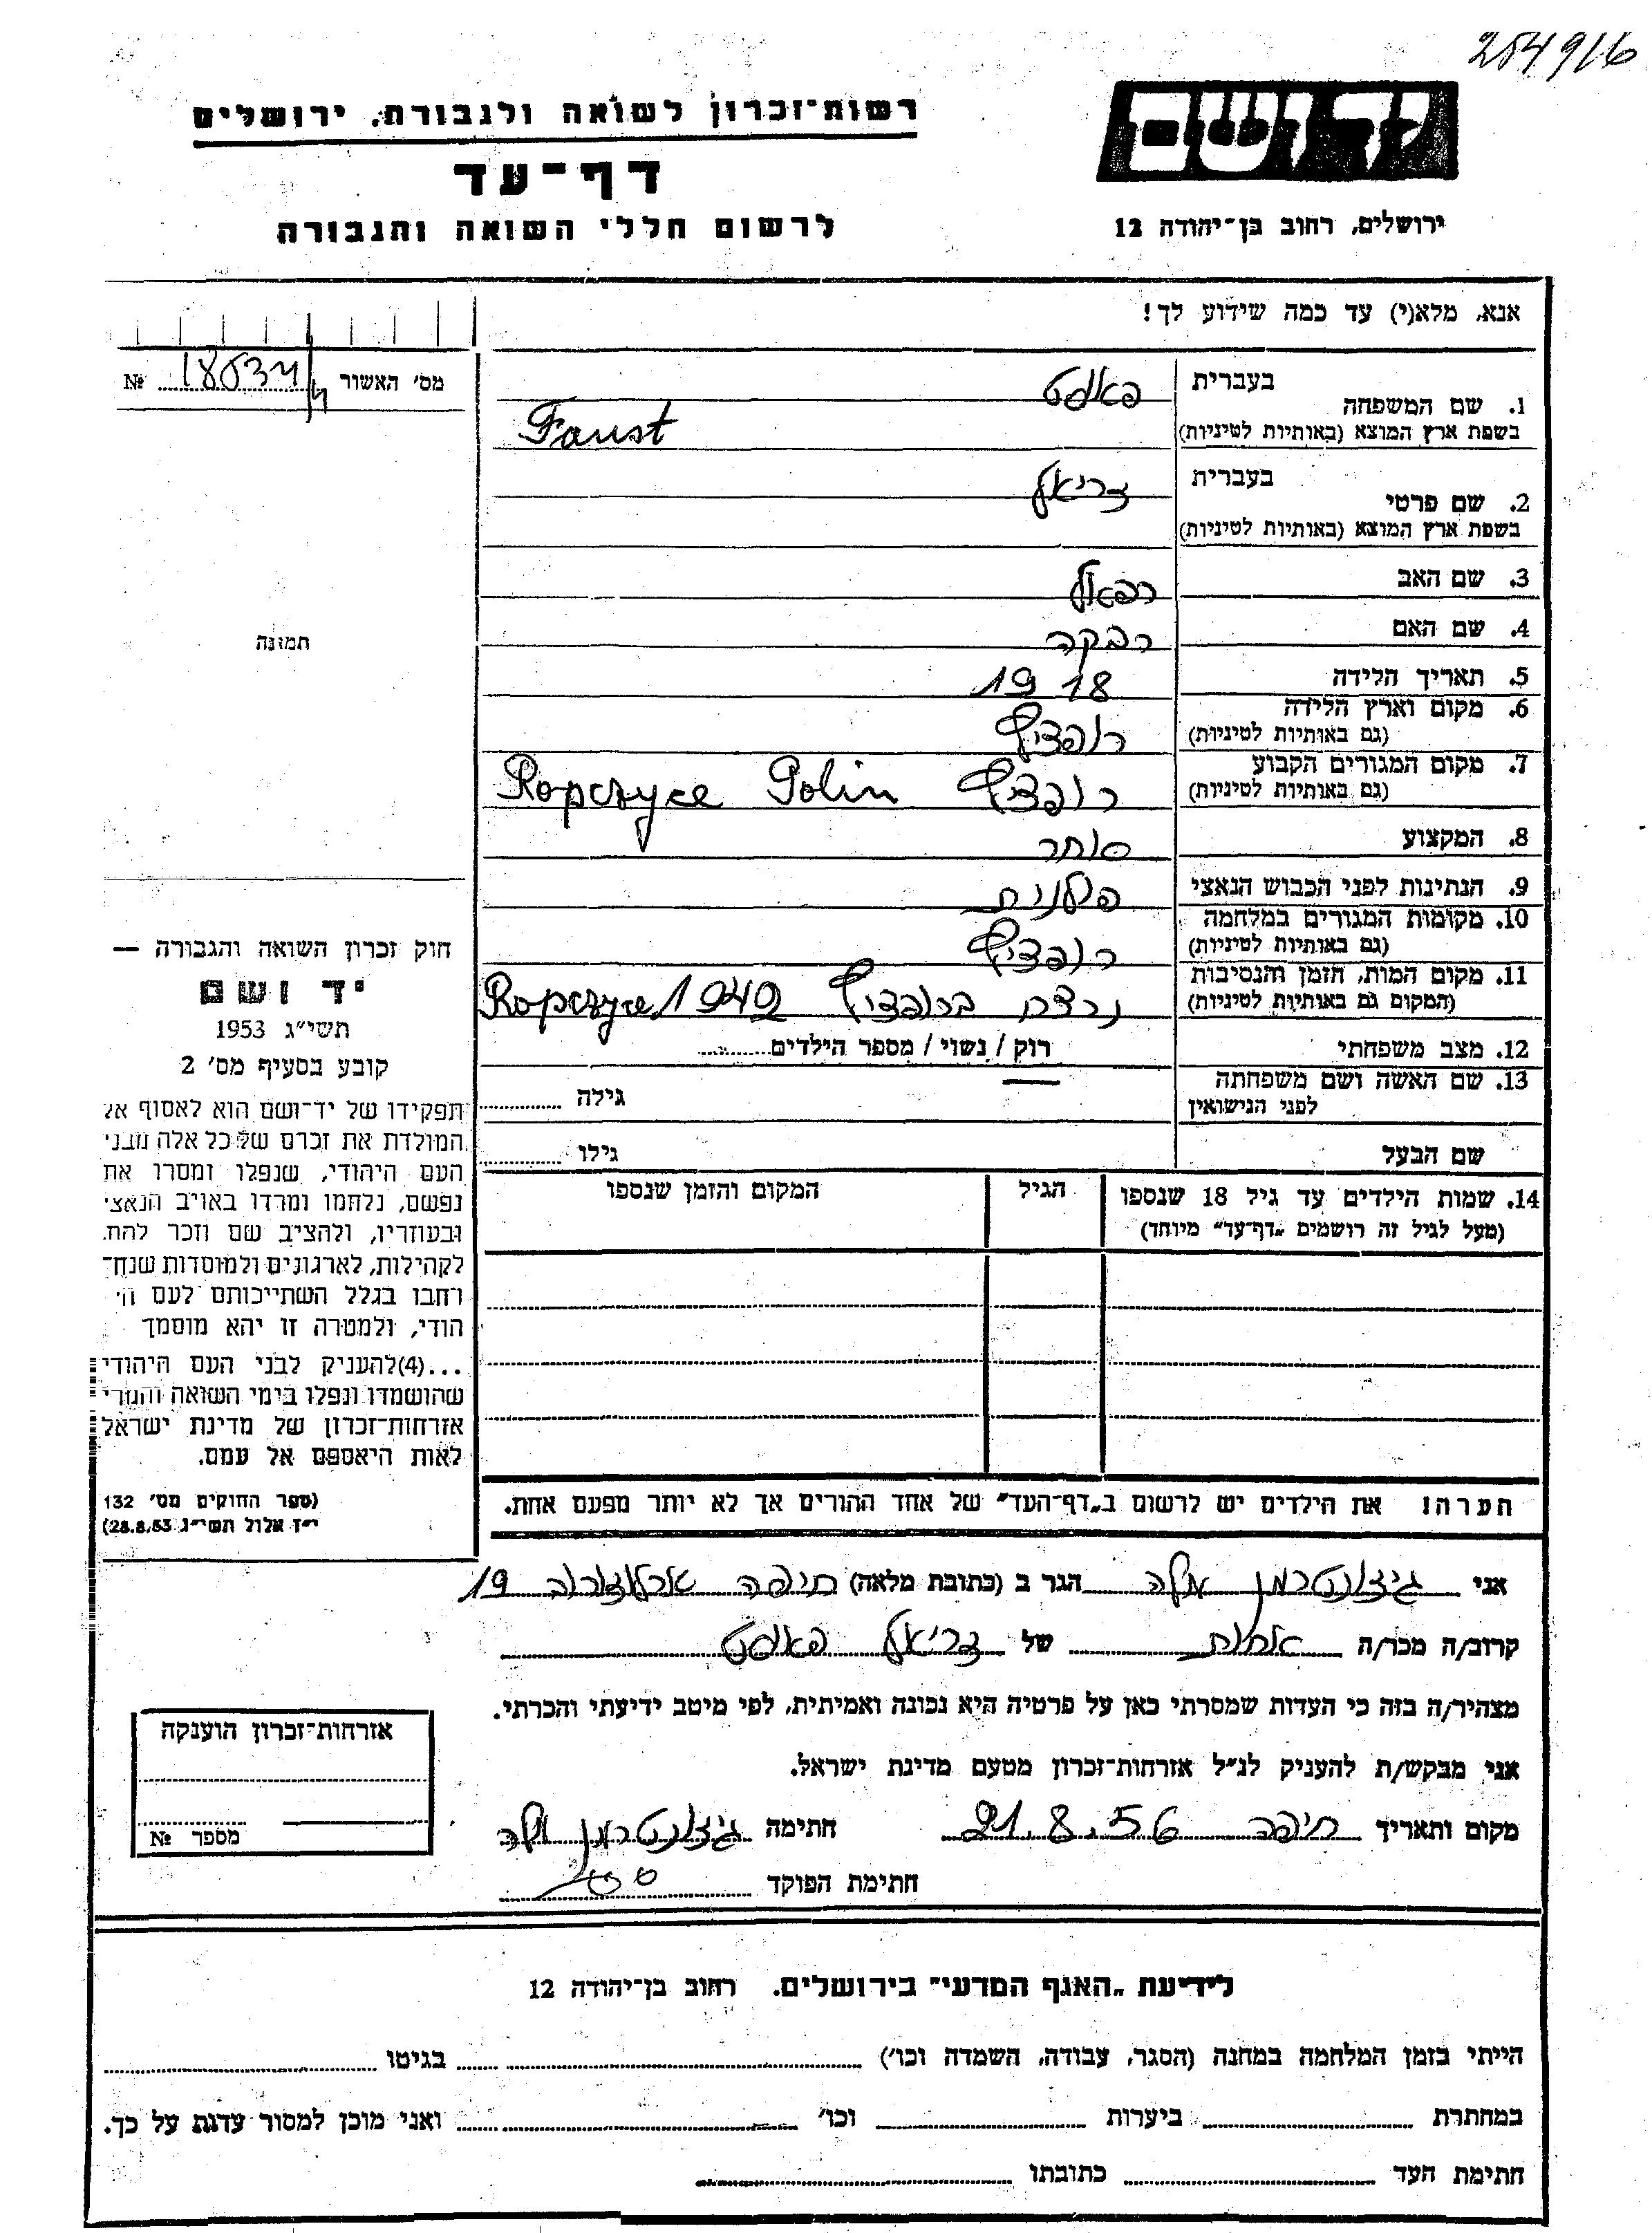 254916
יד ושם
רשות-זכרון לשואה ולגבורה, ירושלים
דף-עד
לרשום חללי השואה והגבורה
ירושלים, רחוב בן-יהודה 12
אנא, מלא(י) עד כמה שידוע לך!
מס' האשור № 
1. שם המשפחה בעברית פאוסט
בשפת ארץ המוצא (באותיות לטיניות) Faust
2. שם פרטי בעברית
בשפת ארץ המוצא (באותיות לטיניות)
3. שם האב רפאל
4. שם האם רבקה
5. תאריך הלידה 1918
6. מקום וארץ הלידה רופציץ
(גם באותיות לטיניות)
7. מקום המגורים הקבוע רופציץ Ropczyce Polin
(גם באותיות לטיניות)
8. המקצוע סוחר
9. הנתינות לפני הכבוש הנאצי פולנית
10. מקומות המגורים במלחמה רופציץ
(גם באותיות לטיניות)
11. מקום המות, הזמן והנסיבות נרצח ברופציץ Ropczyce 1942
(המקום גם באותיות לטיניות)
12. מצב משפחתי רוק / נשוי / מספר הילדים
13. שם האשה ושם משפחתה גילה
לפני הנישואין
שם הבעל גילו
14. שמות הילדים עד גיל 18 שנספו הגיל המקום והזמן שנספו
(מעל לגיל זה רושמים „דף-עד" מיוחד)
הערה! את הילדים יש לרשום ב„דף-העד" של אחד ההורים אך לא יותר מפעם אחת.
תמונה
חוק זכרון השואה והגבורה —
יד ושם
תשי"ג 1953
קובע בסעיף מס' 2
תפקידו של יד-ושם הוא לאסוף אל
המולדת את זכרם של כל אלה מבני
העם היהודי, שנפלו ומסרו את
נפשם, נלחמו ומרדו באויב הנאצי
ובעוזריו, ולהציב שם וזכר להם,
לקהילות, לארגונים ולמוסדות שנח־
רחבו בגלל השתייכותם לעם הי
הודי, ולמטרה זו יהא מוסמך
...(4)להעניק לבני העם היהודי
שהושמדו ונפלו בימי השואה והמרי
אזרחות-זכרון של מדינת ישראל
לאות היאספם אל עמם.
(ספר החוקים מס' 132
י"ז אלול תשי"ג 28.8.53)
אני הגר ב (כתובת מלאה) חיפה ארלוזורוב 19
קרוב/ה מכר/ה אחות של פאוסט
מצהיר/ה בזה כי העדות שמסרתי כאן על פרטיה היא נכונה ואמיתית, לפי מיטב ידיעתי והכרתי.
אני מבקש/ת להעניק לנ"ל אזרחות-זכרון מטעם מדינת ישראל.
מקום ותאריך חיפה 21.8.56 חתימה
חתימת הפוקד
אזרחות-זכרון הוענקה
מספר №
לידיעת „האגף המדעי" בירושלים, רחוב בן-יהודה 12
הייתי בזמן המלחמה במחנה (הסגר, עבודה, השמדה וכו') בגיטו
במחתרת ביערות וכו' ואני מוכן למסור עדות על כך.
חתימת העד כתובתו